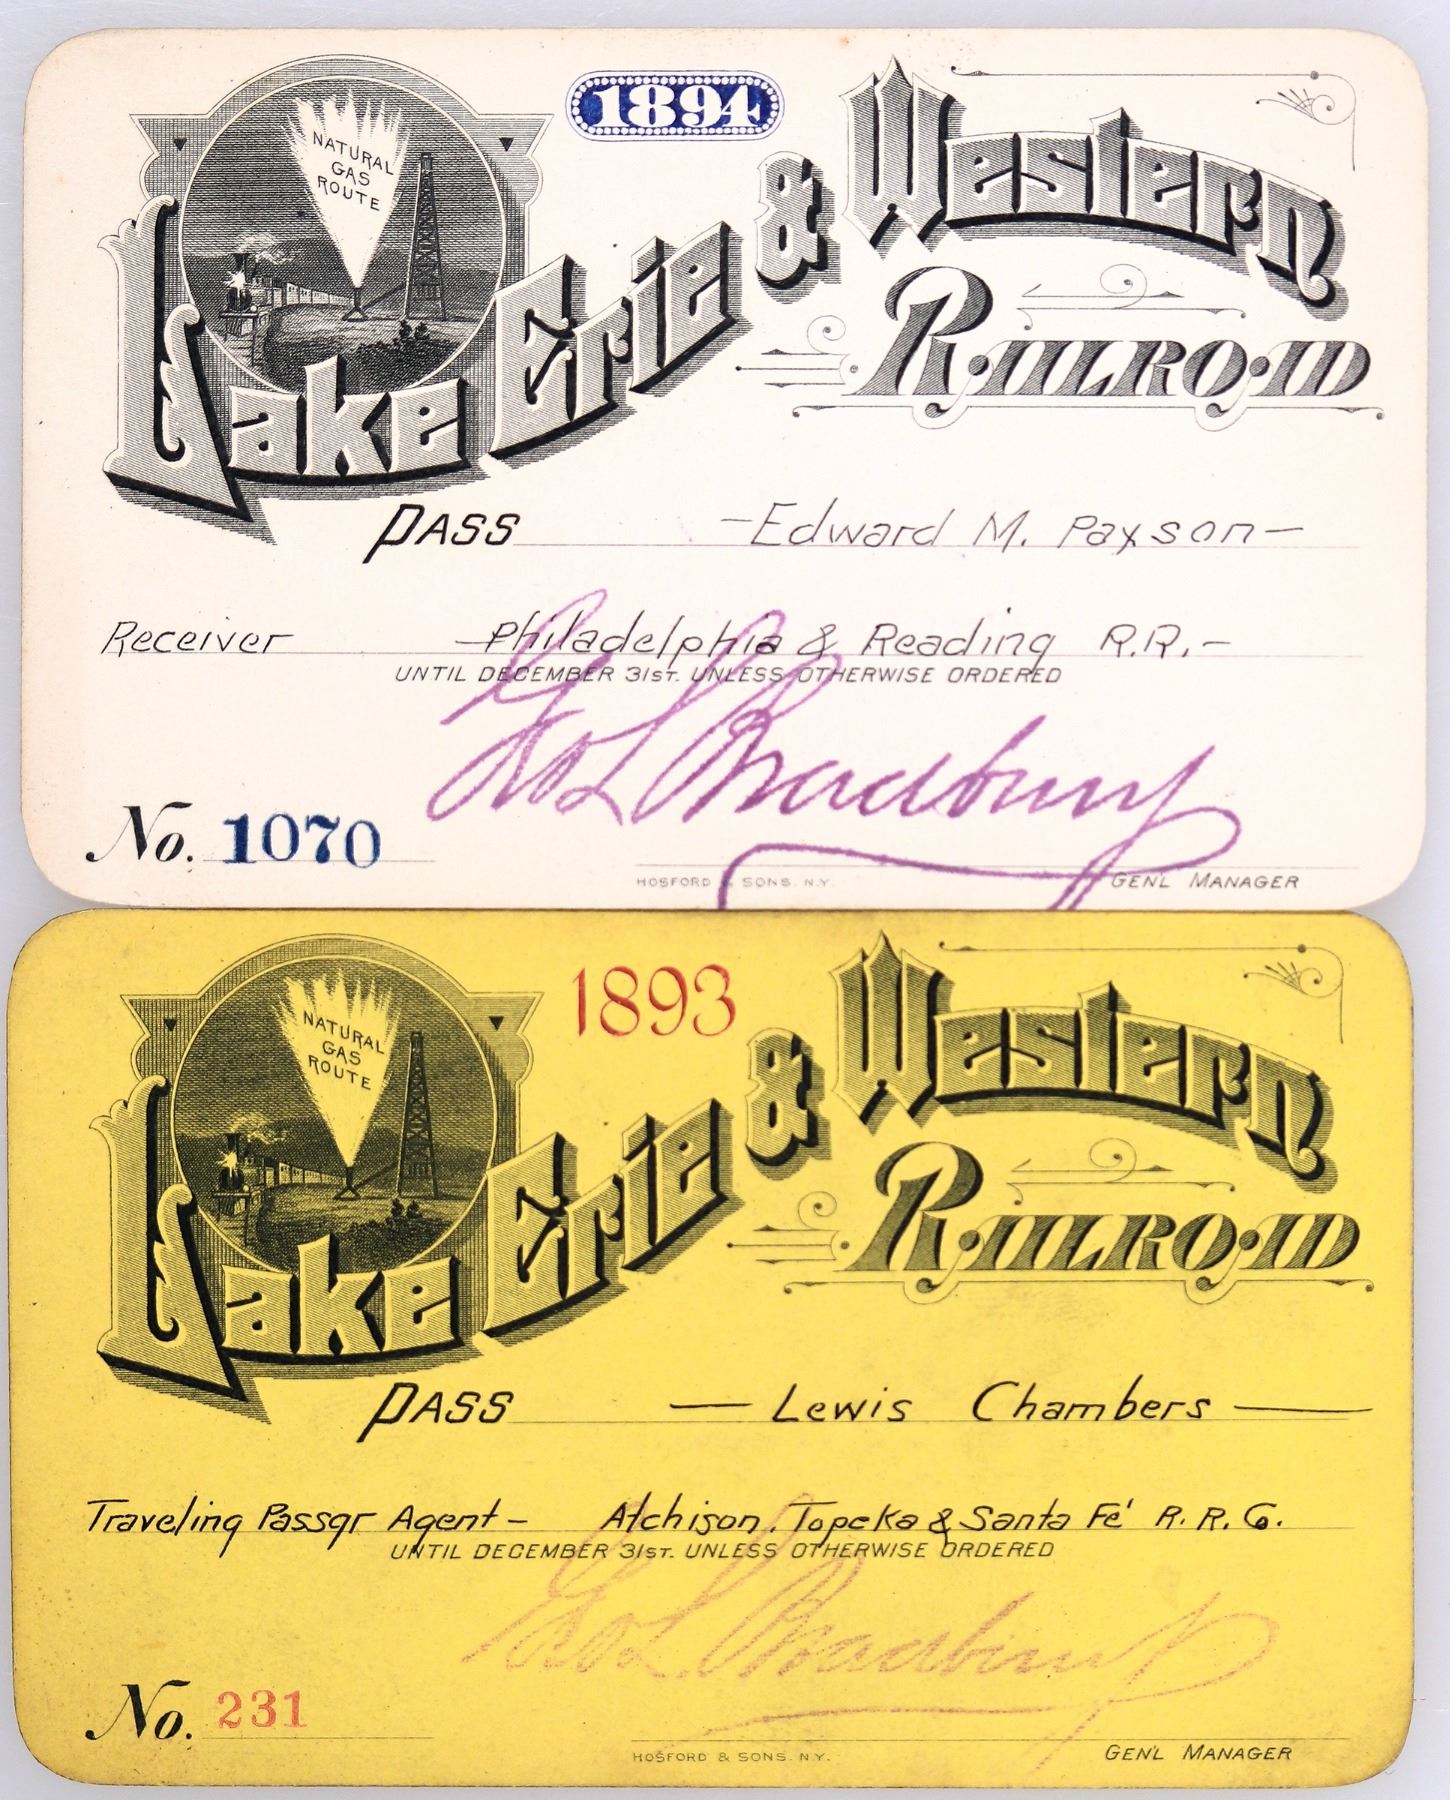 1894
NATURAL
GAS
ROUTE
Lake Erie & Western
RAILROAD
PASS -Edward M. Paxson-
Receiver -Philadelphia & Reading R.R.-
UNTIL DECEMBER 31ST. UNLESS OTHERWISE ORDERED
Geo L Bradbury
No. 1070
HOSFORD & SONS. N.Y. GEN'L MANAGER
1893
NATURAL
GAS
ROUTE
Lake Erie & Western
RAILROAD
PASS — Lewis Chambers —
Traveling Passgr Agent - Atchison, Topeka & Santa Fé R. R. Co.
UNTIL DECEMBER 31ST. UNLESS OTHERWISE ORDERED
Geo L Bradbury
No. 231
HOSFORD & SONS. N.Y. GEN'L MANAGER